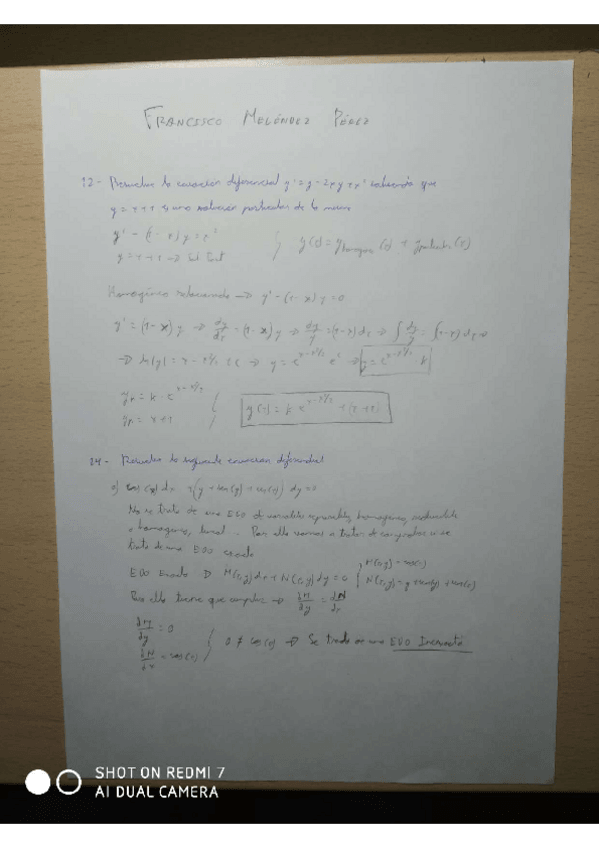 FRANCISCO MELÉNDEZ PÉREZ
12- Resuelve la ecuación diferencial y' = y - 2xy + x² sabiendo que
y = x+1 es una solución particular de la misma
y' - (1-x)y = x²
y = x+1 → Sol Part
y(x) = y homogénea (x) + y particular (x)
Homogénea relacionada → y' - (1-x)y = 0
y' = (1-x)y → dy/dx = (1-x)y → dy/y = (1-x)dx → ∫ dy/y = ∫(1-x)dx →
→ ln(y) = x - x²/2 + c → y = e^(x-x²/2) e^c → y = e^(x-x²/2) · k
yH = k · e^(x-x²/2)
yp = x+1
y(x) = k e^(x-x²/2) + (x+1)
24- Resuelve la siguiente ecuación diferencial
a) cos(x) dx + (y + sen(y) + sen(x)) dy = 0
No se trata de una EDO de variables separables, homogénea, reducible
a homogénea, lineal. Por ello vamos a tratar de comprobar si se
trata de una EDO exacta
EDO Exacta → M(x,y)dx + N(x,y)dy = 0
M(x,y) = cos(x)
N(x,y) = y + sen(y) + sen(x)
Por ello tiene que cumplir → ∂M/∂y = ∂N/∂x
∂M/∂y = 0
∂N/∂x = cos(x)
0 ≠ cos(x) → Se trata de una EDO Inexacta
SHOT ON REDMI 7
AI DUAL CAMERA